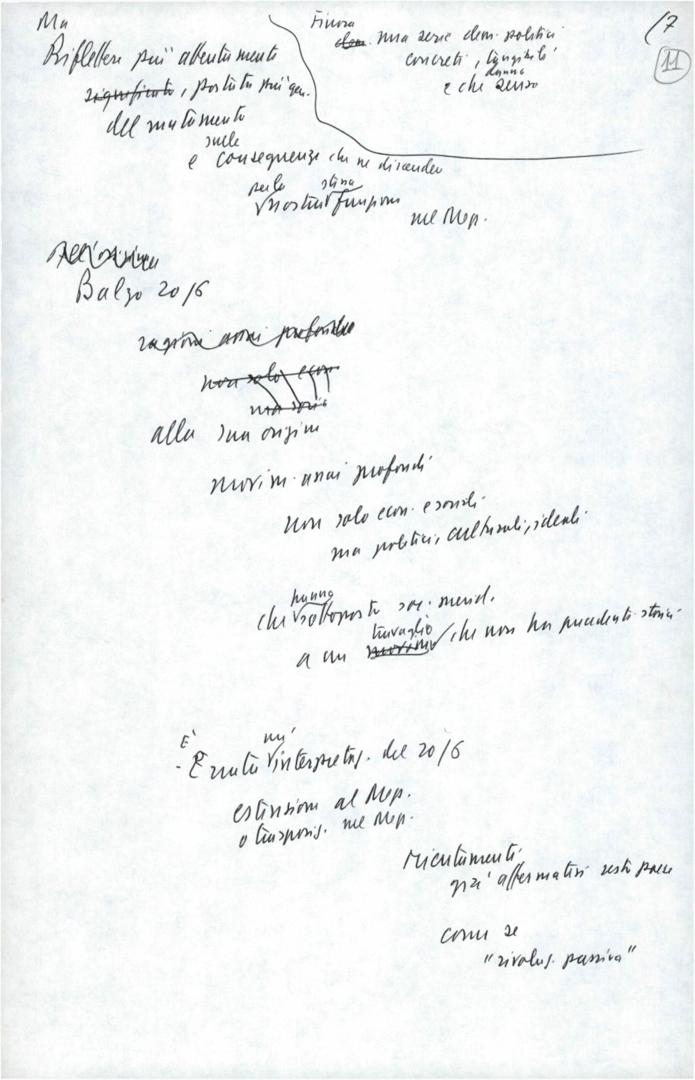 Ma
Riflettere più attentamente
significato, portata più gen.
del mutamento
sulle
e conseguenze che ne discendono
per la nostra stessa funzione
nel Mep.
Finora
una serie elem. politici
concreti, tangibili
danno
e che senso
17
11
Balzo 20/6
ragioni assai profonde
non solo econ
alla sua origine
movim. assai profondi
non solo econ. e sociali
ma politici, culturali, ideali
hanno
che sottoposto soc. merid.
travaglio
a un che non ha precedenti storici
È
- È nata interpretaz. del 20/6
estensione al Mep.
o trasposiz. nel Mep.
orientamenti
già affermatisi resto paese
come se
"rivoluz. passiva"